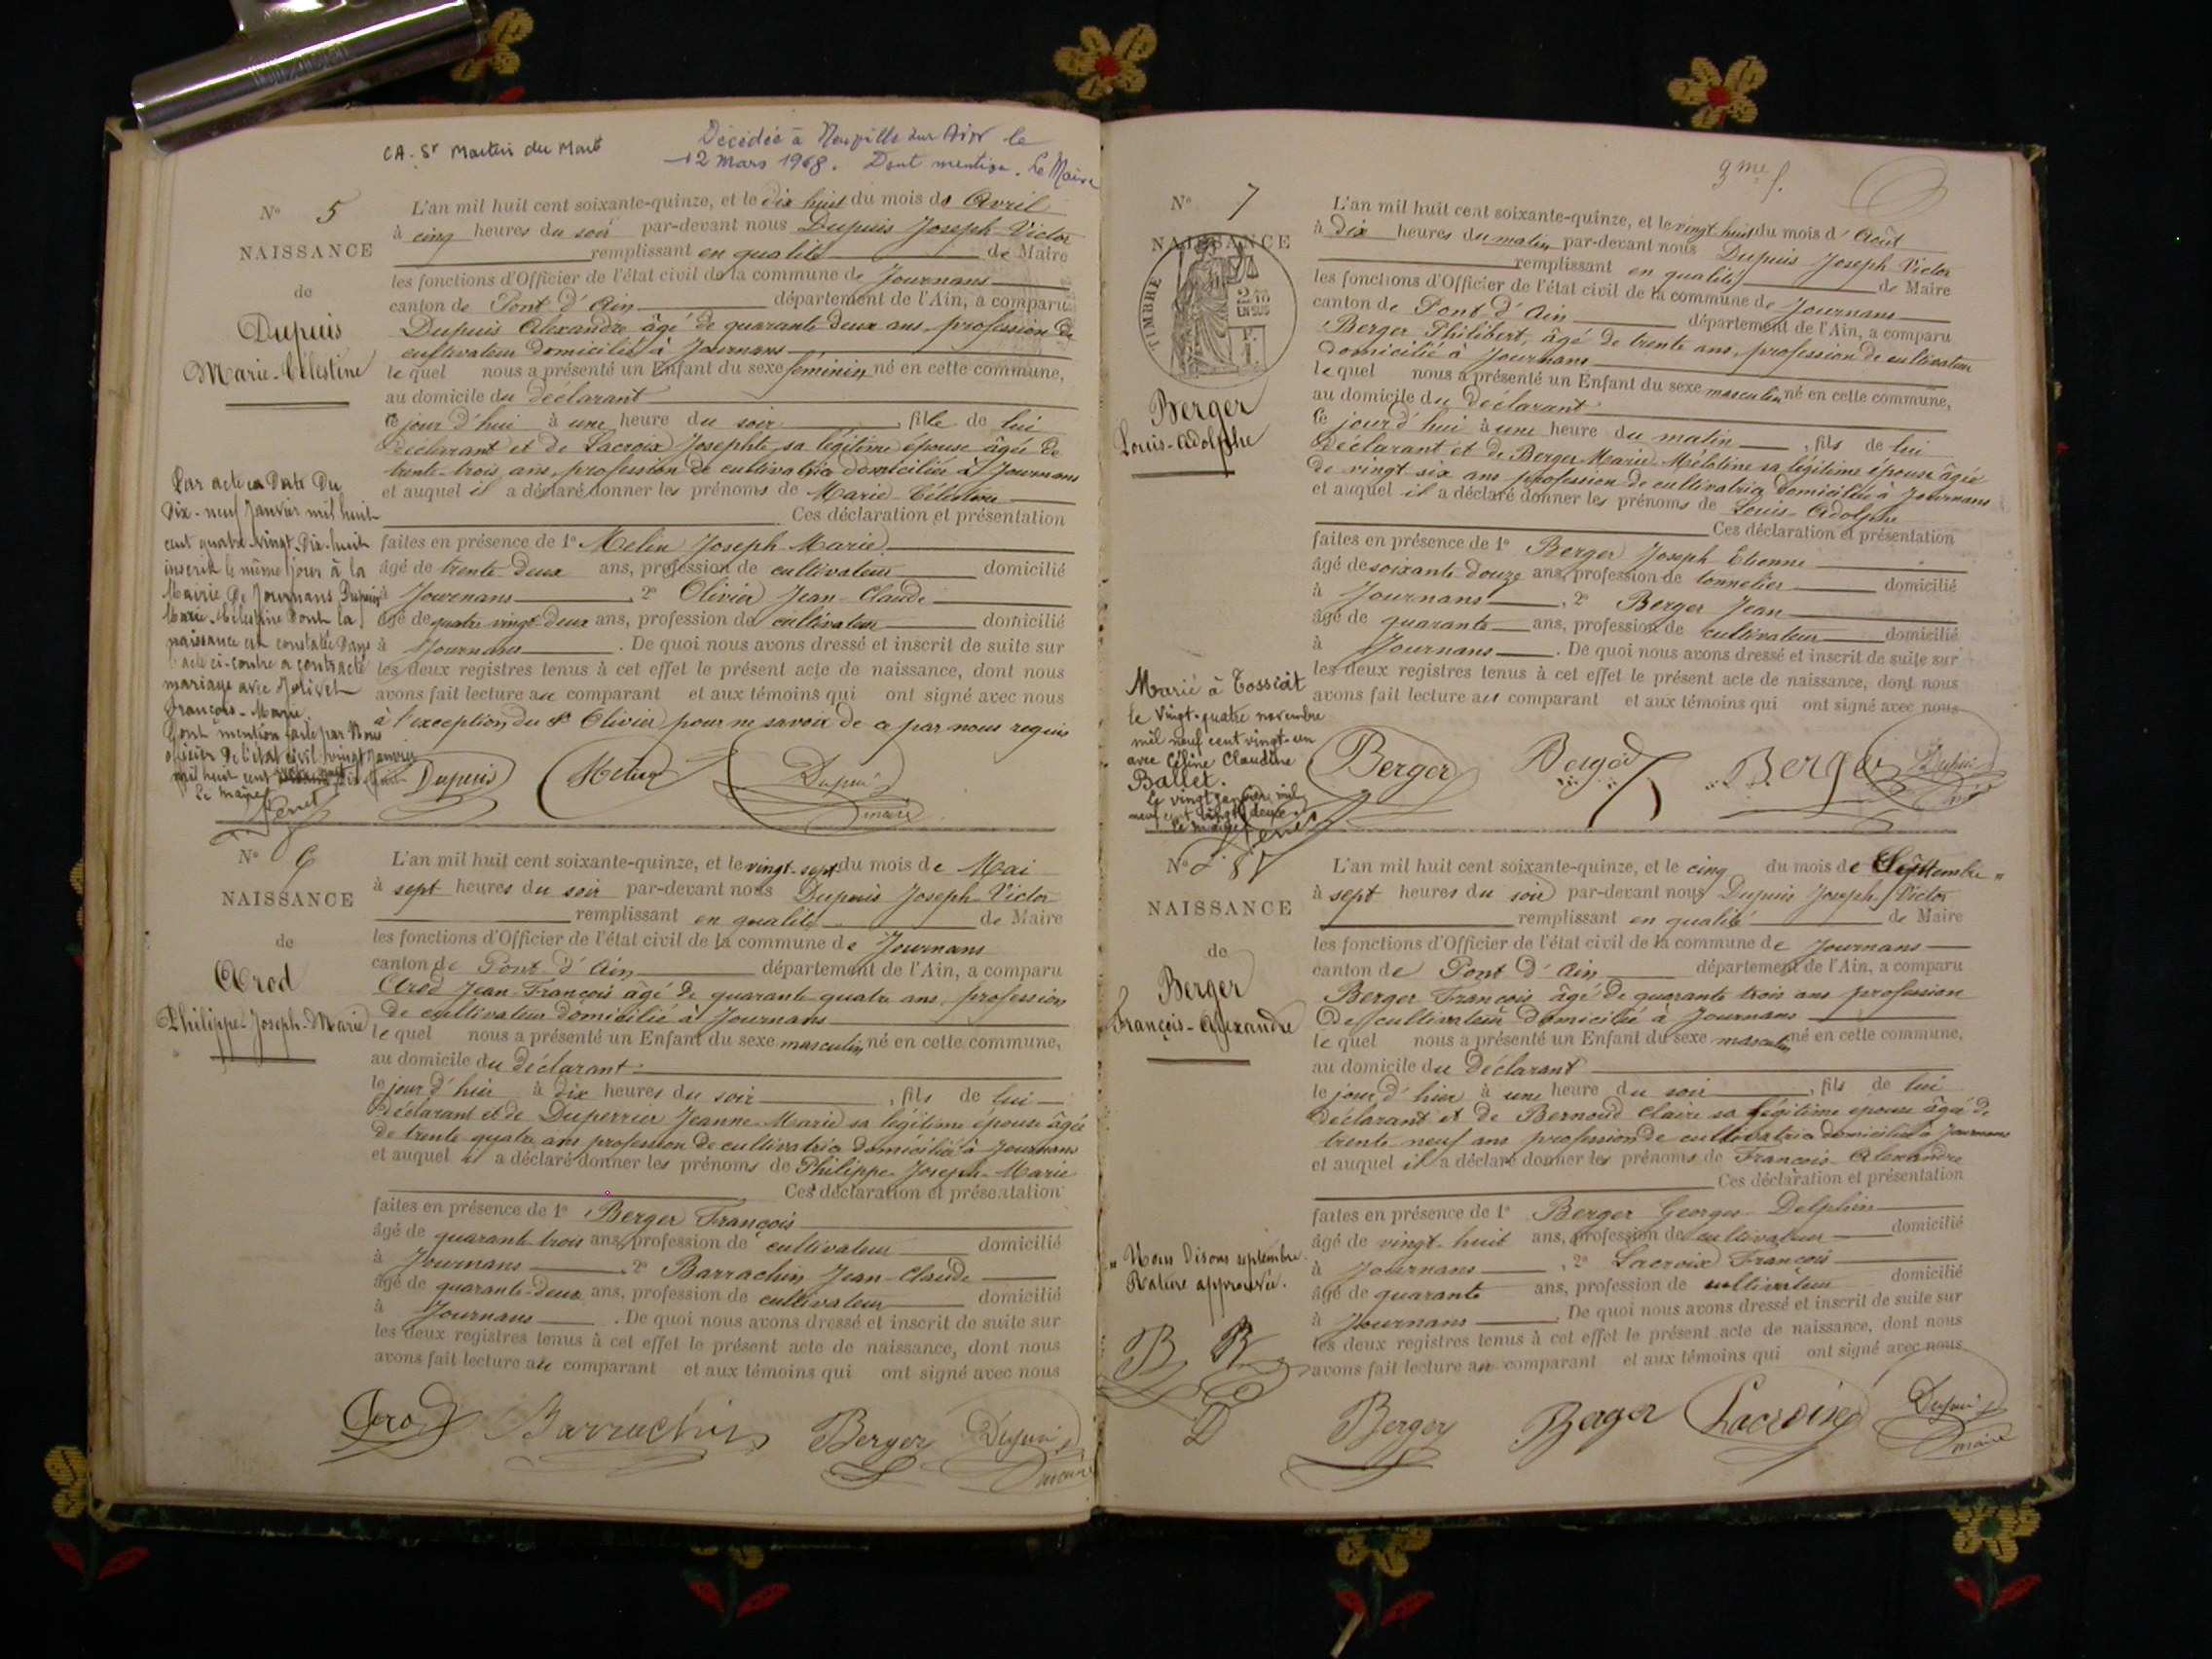 CA. St Martin du Mont
Décédée à Neuville sur Ain le
12 Mars 1968. Dont mention. Le Maire
N° 5
NAISSANCE
de
Dupuis
Marie-Célestine
L'an mil huit cent soixante-quinze, et le dix huit du mois de Avril
à cinq heures du soir par-devant nous Dupuis Joseph Victor
remplissant en qualité de Maire
les fonctions d'Officier de l'état civil de la commune de Journans
canton de Pont d'Ain département de l'Ain, a comparu
Dupuis Alexandre âgé de quarante deux ans, profession de
cultivateur domicilié à Journans
lequel nous a présenté un Enfant du sexe féminin né en cette commune,
au domicile du déclarant
ce jour d'hui à une heure du soir, fille de lui
déclarant et de Lacroix Josephte sa légitime épouse âgée de
trente-trois ans, profession de cultivatrice domiciliée à Journans
et auquel il a déclaré donner les prénoms de Marie-Célestine
Ces déclaration et présentation
faites en présence de 1° Melin Joseph-Marie
âgé de trente-deux ans, profession de cultivateur domicilié
à Journans, 2° Olivier Jean-Claude
âgé de quatre vingt deux ans, profession de cultivateur domicilié
à Journans. De quoi nous avons dressé et inscrit de suite sur
les deux registres tenus à cet effet le présent acte de naissance, dont nous
avons fait lecture au comparant et aux témoins qui ont signé avec nous
à l'exception du Olivier pour ne savoir de ce par nous requis
Par acte en Date Du
Dix-neuf Janvier mil huit
cent quatre-vingt-Dix-huit
inscrit le même jour à la
Mairie De Journans Dupuis
Marie-Célestine Dont la
naissance est constatée Dans
l'acte ci-contre a contracté
mariage avec Jolivet
François-Marie.
Dont mention faite par Nous
officier De l'état civil vingt Janvier
mil huit cent
Le Maire
Dupuis Melin Dupuis maire
N° 6
NAISSANCE
de
Arod
Philippe-Joseph-Marie
L'an mil huit cent soixante-quinze, et le vingt-sept du mois de Mai
à sept heures du soir par-devant nous Dupuis Joseph-Victor
remplissant en qualité de Maire
les fonctions d'Officier de l'état civil de la commune de Journans
canton de Pont d'Ain département de l'Ain, a comparu
Arod Jean-François âgé de quarante quatre ans, profession
de cultivateur domicilié à Journans
lequel nous a présenté un Enfant du sexe masculin né en cette commune,
au domicile du déclarant
le jour d'hier à dix heures du soir, fils de lui
déclarant et de Duperrier Jeanne-Marie sa légitime épouse âgée
de trente-quatre ans profession de cultivatrice domiciliée à Journans
et auquel il a déclaré donner les prénoms de Philippe-Joseph-Marie
Ces déclaration et présentation
faites en présence de 1° Berger François
âgé de quarante-trois ans, profession de cultivateur domicilié
à Journans, 2° Barrachin Jean-Claude
âgé de quarante-deux ans, profession de cultivateur domicilié
à Journans. De quoi nous avons dressé et inscrit de suite sur
les deux registres tenus à cet effet le présent acte de naissance, dont nous
avons fait lecture au comparant et aux témoins qui ont signé avec nous
Arod Barrachin Berger Dupuis maire
9me f.
N° 7
NAISSANCE
TIMBRE
2/10
EN SUS
Berger
Louis-Adolphe
L'an mil huit cent soixante-quinze, et le vingt huit du mois d'Août
à dix heures du matin par-devant nous Dupuis Joseph Victor
remplissant en qualité de Maire
les fonctions d'Officier de l'état civil de la commune de Journans
canton de Pont d'Ain département de l'Ain, a comparu
Berger Philibert, âgé de trente ans, profession de cultivateur
domicilié à Journans
lequel nous a présenté un Enfant du sexe masculin né en cette commune,
au domicile du déclarant
ce jour d'hui à une heure du matin, fils de lui
déclarant et de Berger Marie-Mélotine sa légitime épouse âgée
de vingt six ans profession de cultivatrice domiciliée à Journans
et auquel il a déclaré donner les prénoms de Louis-Adolphe
Ces déclaration et présentation
faites en présence de 1° Berger Joseph Etienne
âgé de soixante douze ans, profession de tonnelier domicilié
à Journans, 2° Berger Jean
âgé de quarante ans, profession de cultivateur domicilié
à Journans. De quoi nous avons dressé et inscrit de suite sur
les deux registres tenus à cet effet le présent acte de naissance, dont nous
avons fait lecture au comparant et aux témoins qui ont signé avec nous
Marié à Tossiat
le vingt-quatre novembre
mil neuf cent vingt-un
avec Céline Claudine
Ballet.
Le vingt janvier mil
neuf cent vingt deux.
Le maire
Berger Berger Berger Dupuis
N° 8
NAISSANCE
de
Berger
François-Alexandre
L'an mil huit cent soixante-quinze, et le cinq du mois de Septembre "
à sept heures du soir par-devant nous Dupuis Joseph Victor
remplissant en qualité de Maire
les fonctions d'Officier de l'état civil de la commune de Journans
canton de Pont d'Ain département de l'Ain, a comparu
Berger François âgé de quarante trois ans profession
de cultivateur domicilié à Journans
lequel nous a présenté un Enfant du sexe masculin né en cette commune,
au domicile du déclarant
le jour d'hier à une heure du soir, fils de lui
déclarant et de Bernoud Claire sa légitime épouse âgée de
trente neuf ans profession de cultivatrice domiciliée à Journans
et auquel il a déclaré donner les prénoms de François-Alexandre
Ces déclaration et présentation
faites en présence de 1° Berger Georges Delphin
âgé de vingt-huit ans, profession de cultivateur domicilié
à Journans, 2° Lacroix François
âgé de quarante ans, profession de cultivateur domicilié
à Journans. De quoi nous avons dressé et inscrit de suite sur
les deux registres tenus à cet effet le présent acte de naissance, dont nous
avons fait lecture au comparant et aux témoins qui ont signé avec nous
" Nous Disons septembre.
Rature approuvée.
B B
D
Berger Berger Lacroix Dupuis maire